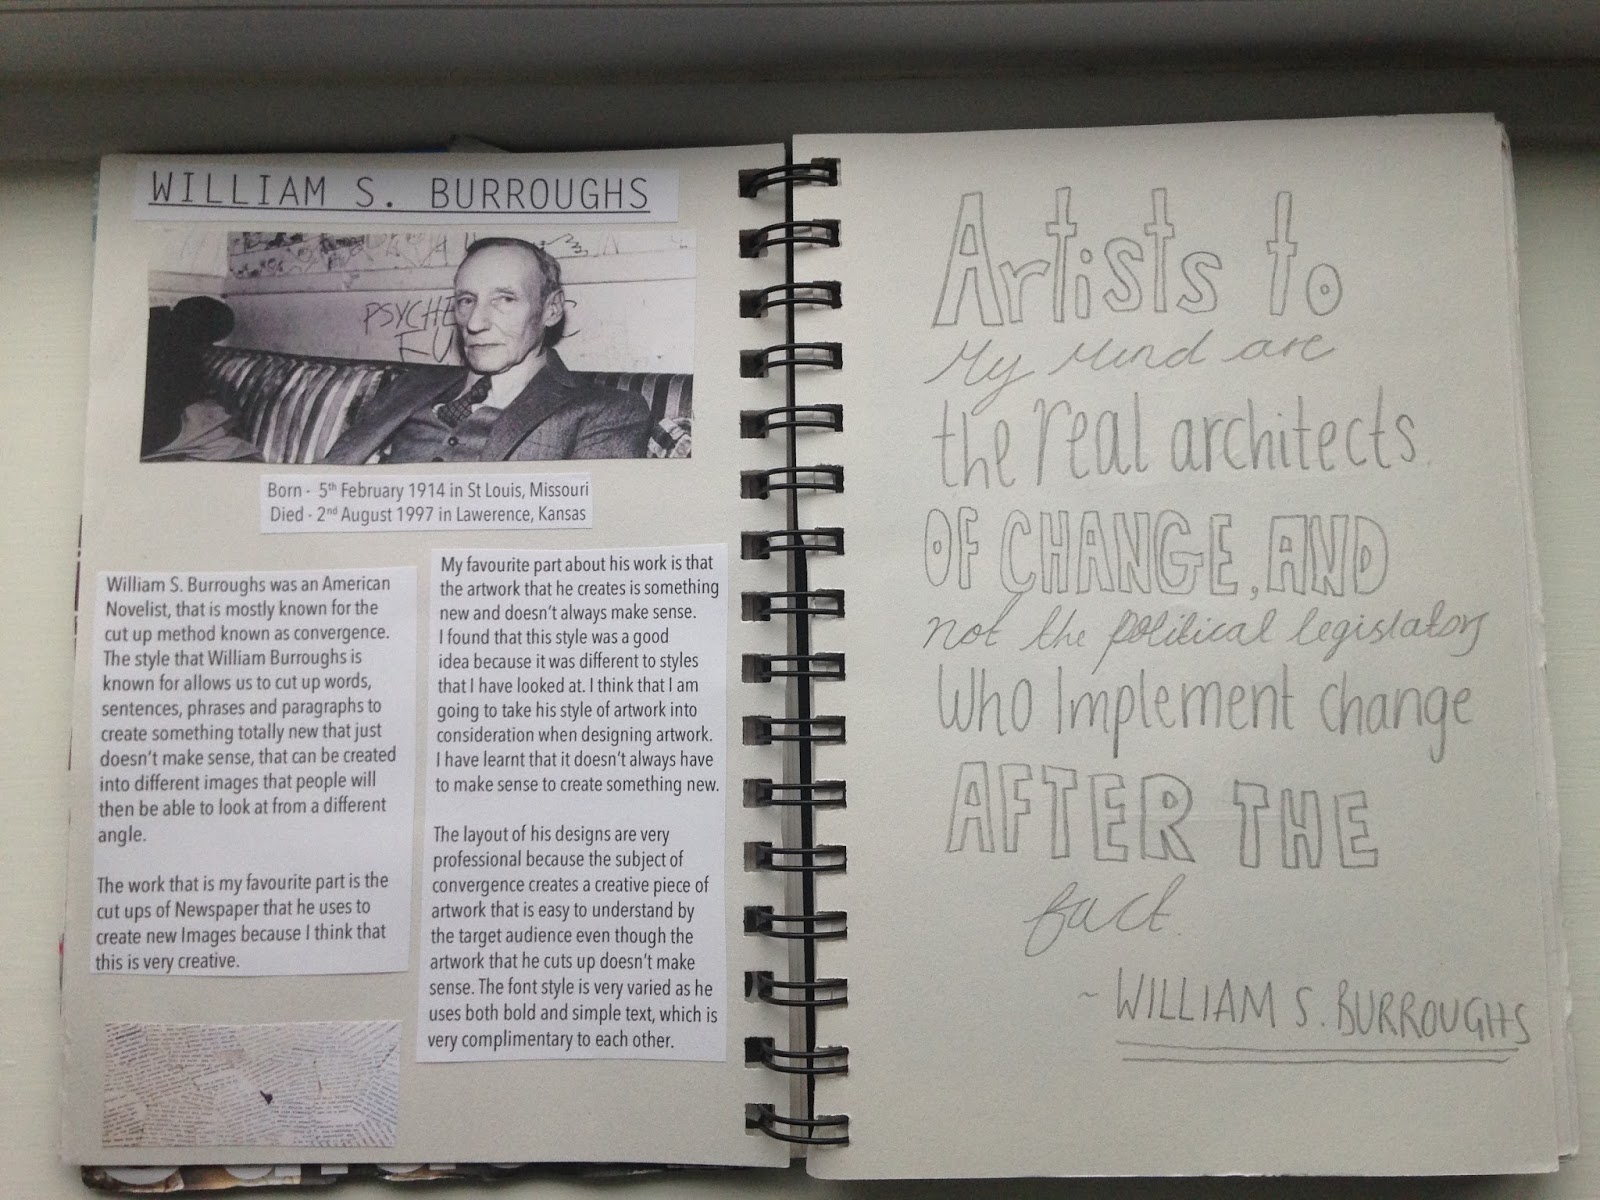 WILLIAM S. BURROUGHS
PSYCHE
FU
Born - 5th February 1914 in St Louis, Missouri
Died - 2nd August 1997 in Lawerence, Kansas
William S. Burroughs was an American
Novelist, that is mostly known for the
cut up method known as convergence.
The style that William Burroughs is
known for allows us to cut up words,
sentences, phrases and paragraphs to
create something totally new that just
doesn't make sense, that can be created
into different images that people will
then be able to look at from a different
angle.
The work that is my favourite part is the
cut ups of Newspaper that he uses to
create new Images because I think that
this is very creative.
My favourite part about his work is that
the artwork that he creates is something
new and doesn't always make sense.
I found that this style was a good
idea because it was different to styles
that I have looked at. I think that I am
going to take his style of artwork into
consideration when designing artwork.
I have learnt that it doesn't always have
to make sense to create something new.
The layout of his designs are very
professional because the subject of
convergence creates a creative piece of
artwork that is easy to understand by
the target audience even though the
artwork that he cuts up doesn't make
sense. The font style is very varied as he
uses both bold and simple text, which is
very complimentary to each other.
Artists to
My mind are
the real architects
OF CHANGE, AND
not the political legislators
Who Implement change
AFTER THE
fact.
~ WILLIAM S. BURROUGHS